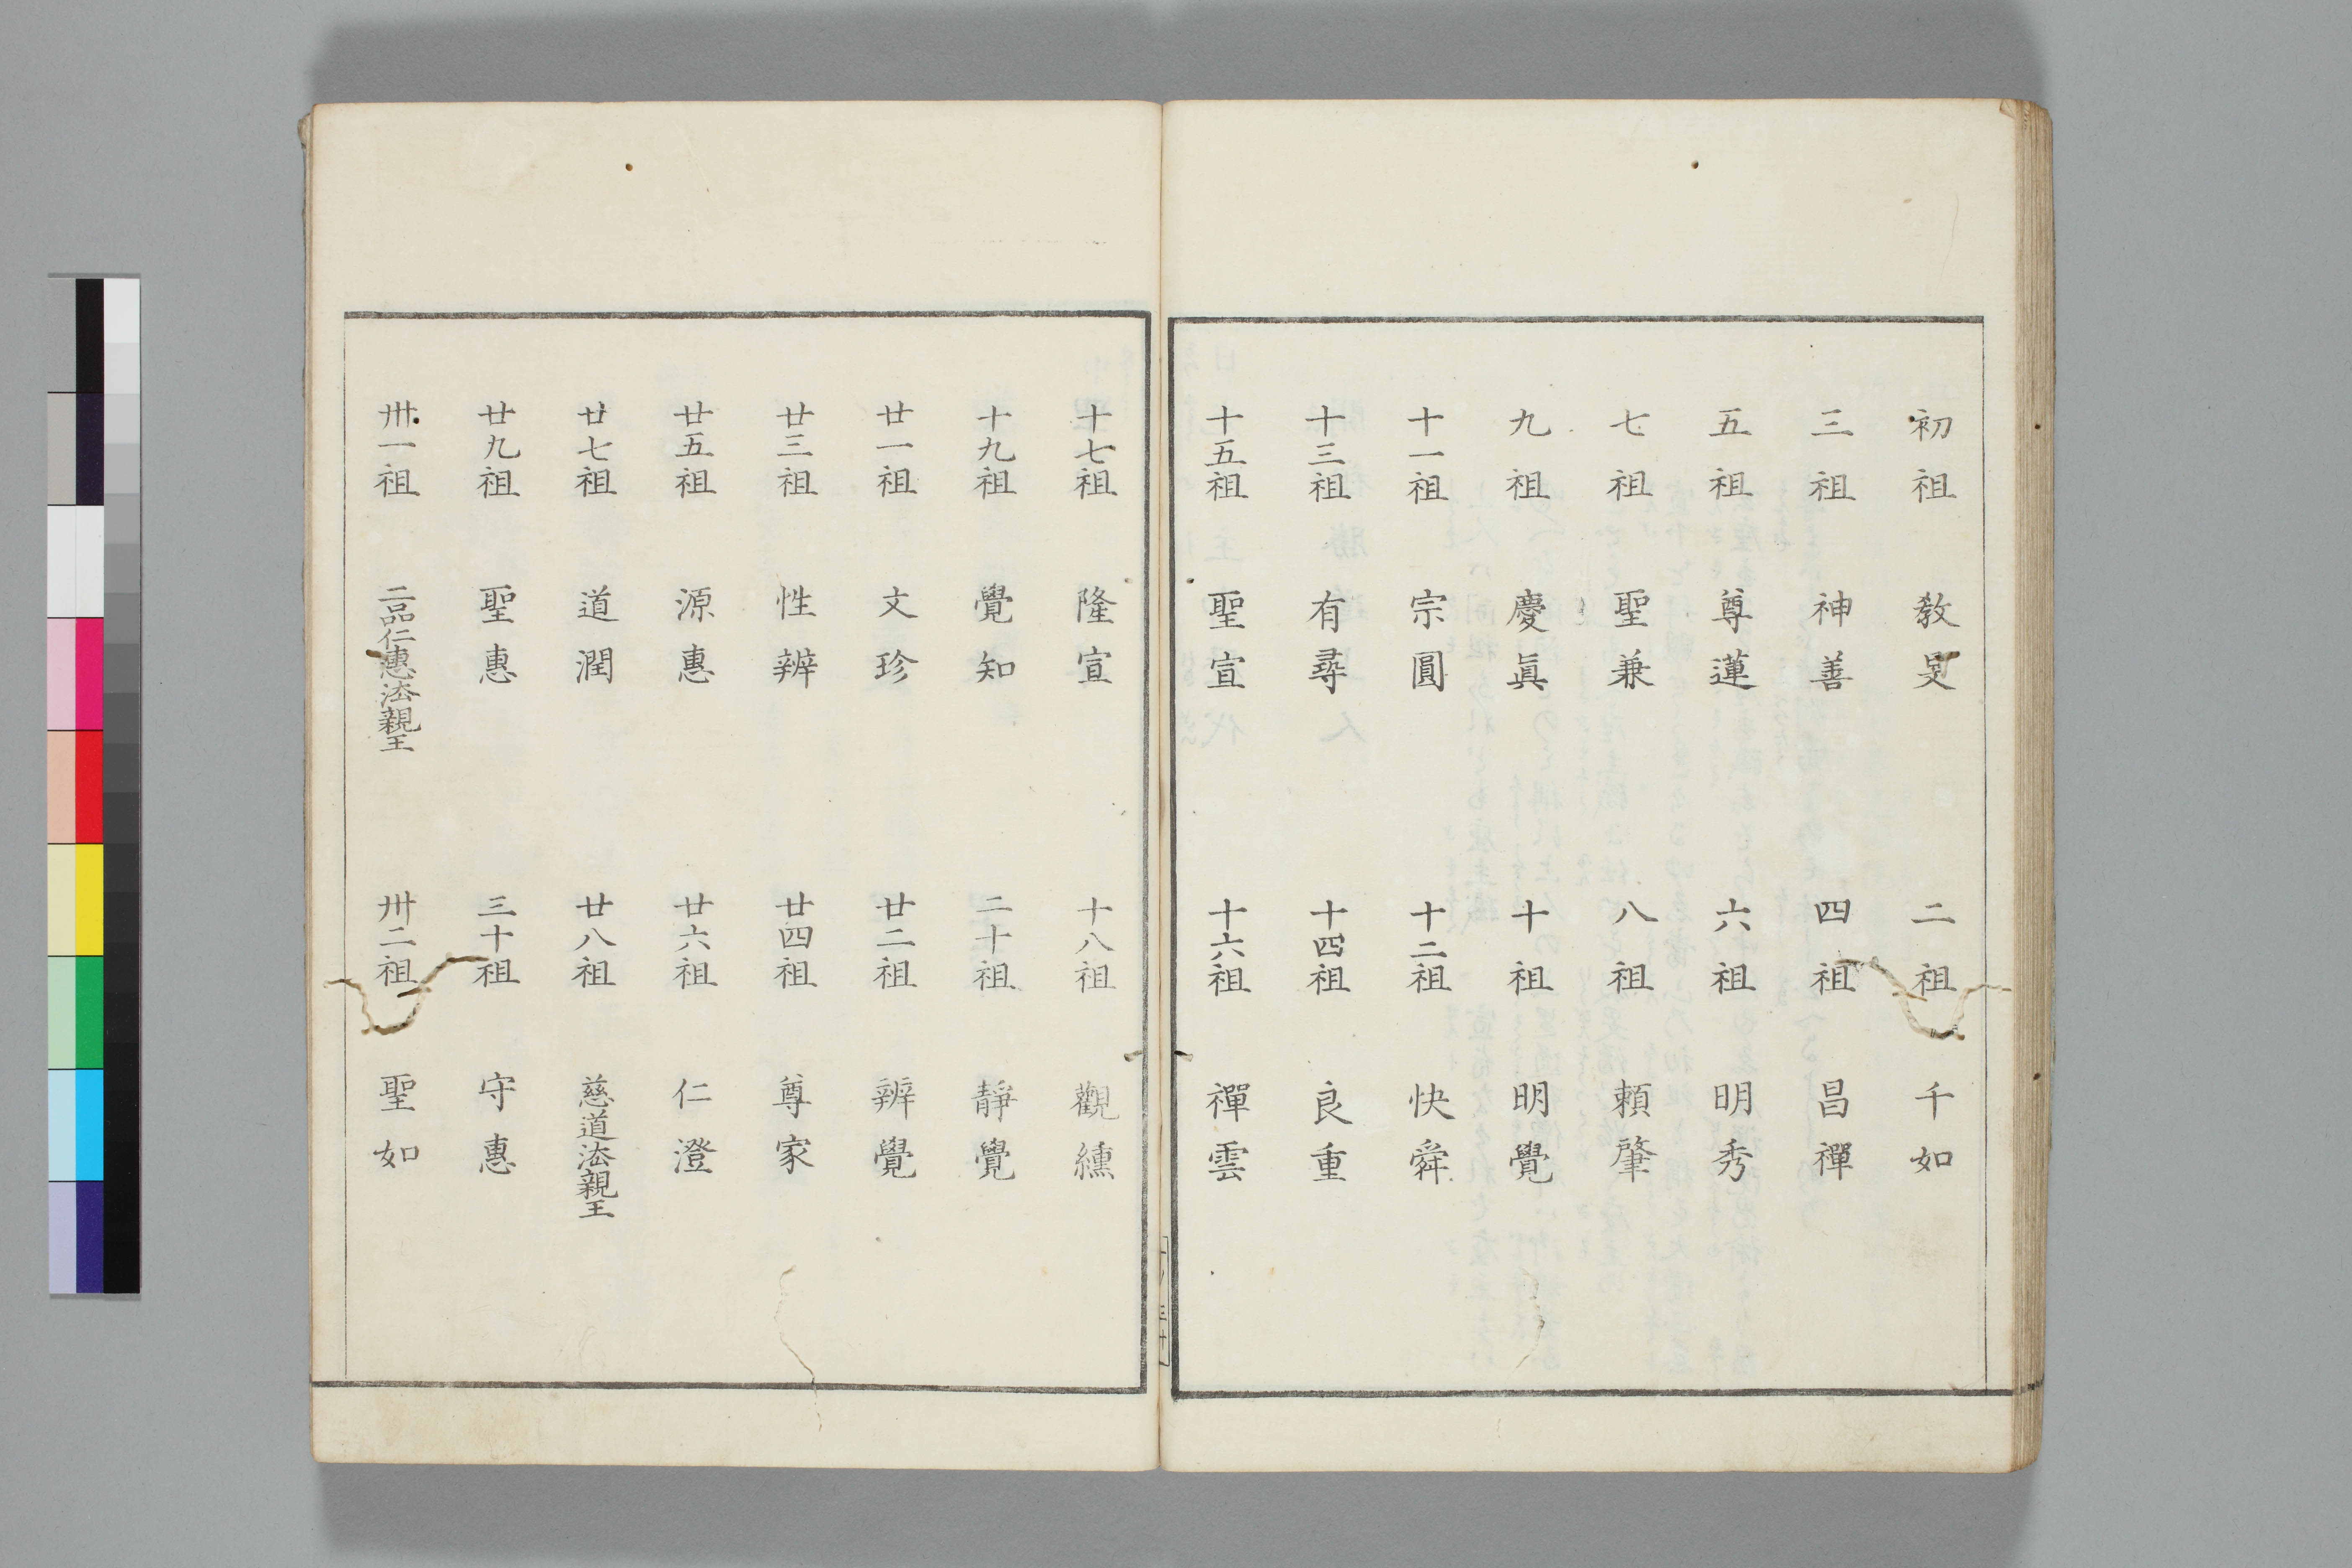 初祖　教旻　二祖　千如
三祖　神善　四祖　昌禪
五祖　尊蓮　六祖　明秀
七祖　聖兼　八祖　頼肇
九祖　慶眞　十祖　明覺
十一祖　宗圓　十二祖　快舜
十三祖　有尋　十四祖　良重
十五祖　聖宣　十六祖　禪雲
十七祖　隆宣　十八祖　觀纁
十九祖　覺知　二十祖　靜覺
廿一祖　文珍　廿二祖　辨覺
廿三祖　性辨　廿四祖　尊家
廿五祖　源惠　廿六祖　仁澄
廿七祖　道潤　廿八祖　慈道法親王
廿九祖　聖惠　三十祖　守惠
卅一祖　二品仁惠法親王　卅二祖　聖如